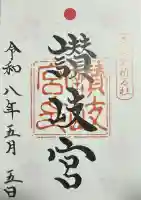 讃岐宮
令和八年五月五日
讃岐宮